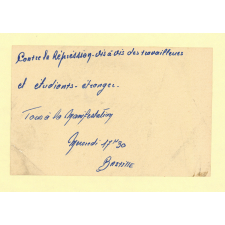 Contre la Répression-vis à vis des travailleurs
et Etudiants-étranger.
Tous à la Manifestation
17H30
Bastille